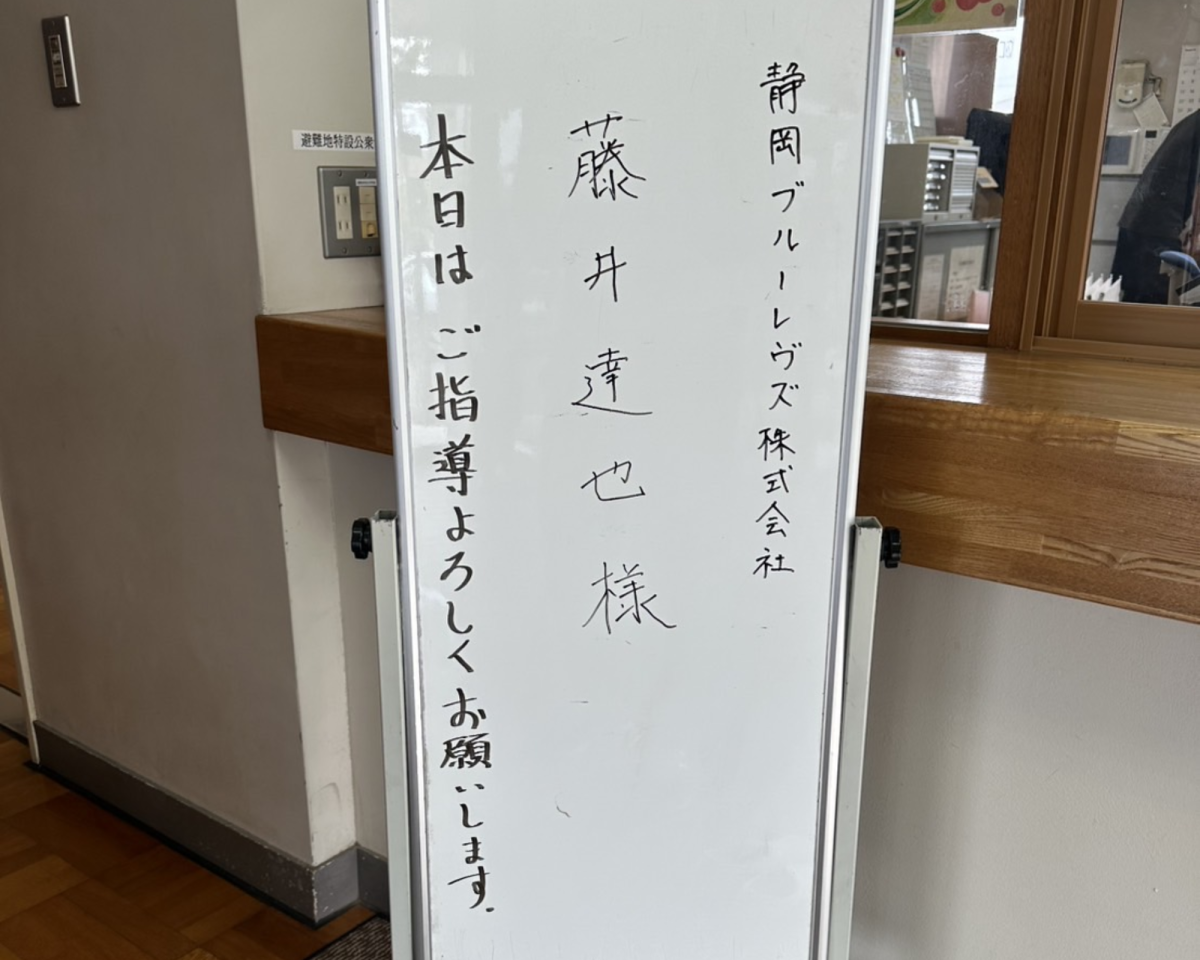 静岡ブルーレヴズ株式会社
藤井達也様
本日はご指導よろしくお願いします.
避難地特設公衆